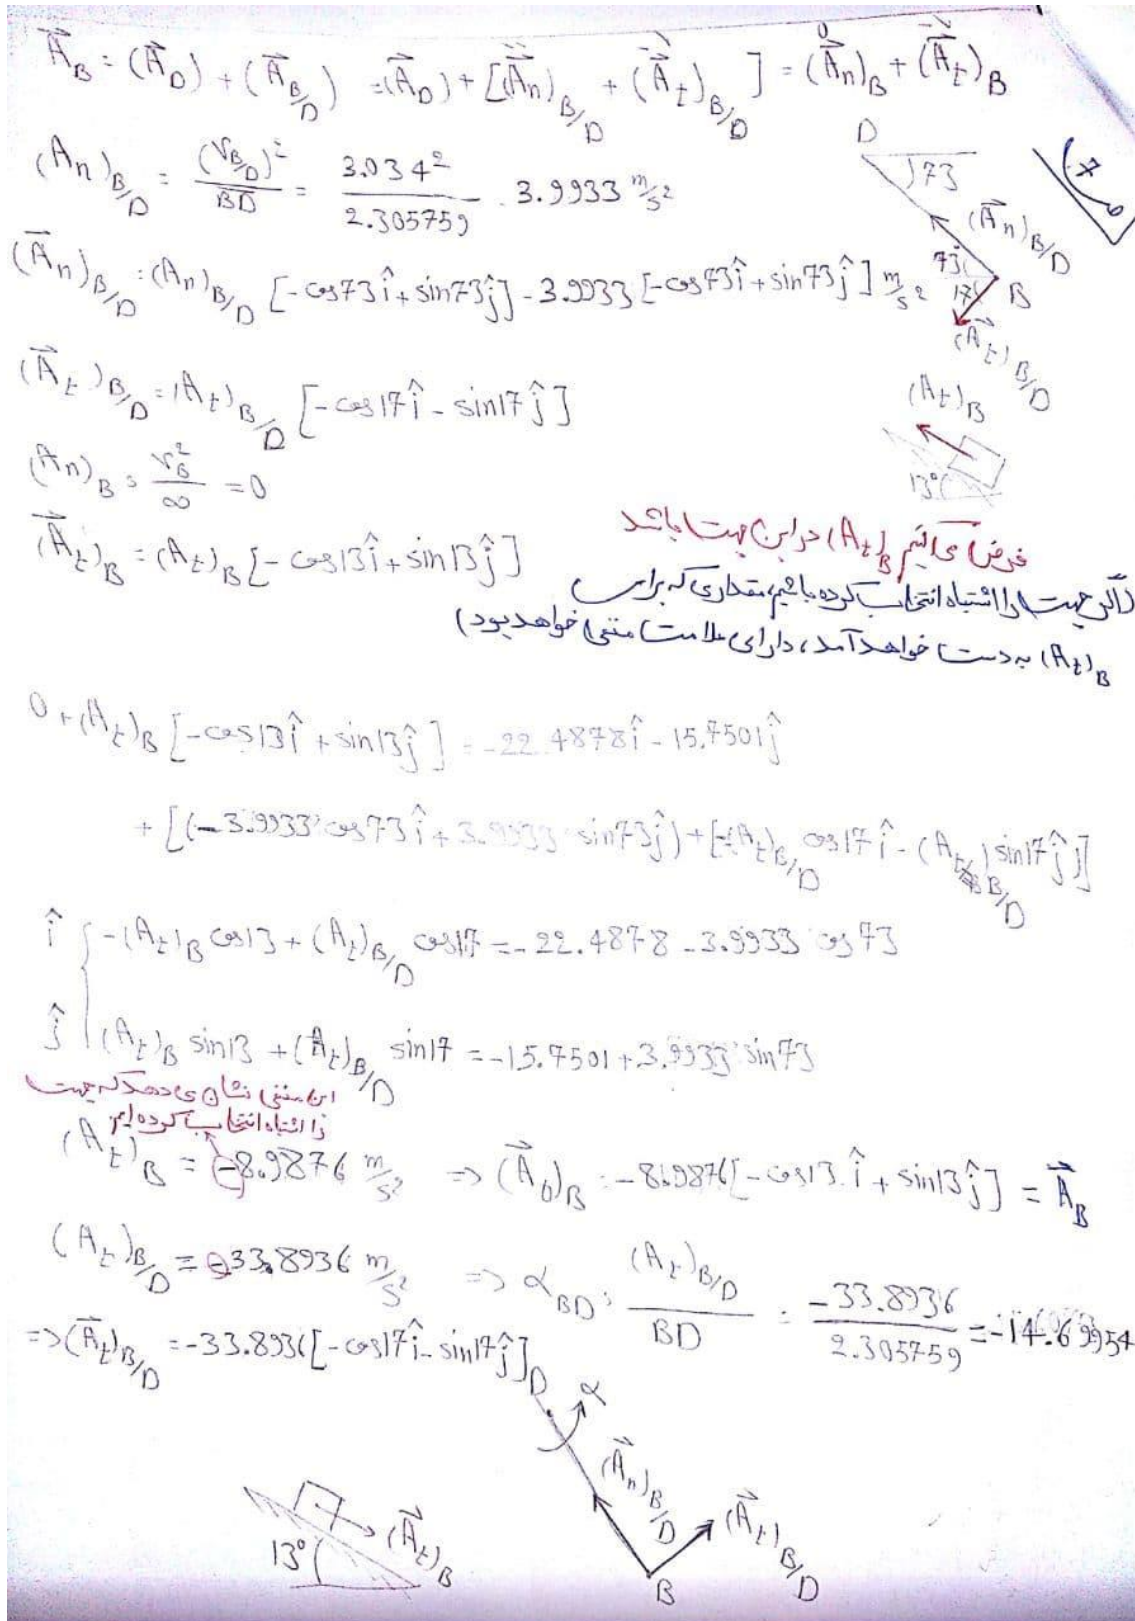 A⃗_B = (A⃗_D) + (A⃗_{B/D}) = (A⃗_D) + [(A⃗_n)_{B/D} + (A⃗_t)_{B/D}] = (A⃗_n)_B + (A⃗_t)_B
0
(A_n)_{B/D} = (V_{B/D})² / BD = 3.034² / 2.305759 = 3.9933 m/s²
D
73
(A⃗_n)_{B/D}
73°
17
B
(A⃗_t)_{B/D}
(A⃗_n)_{B/D} = (A_n)_{B/D} [-cos73 î + sin73 ĵ] = 3.9933 [-cos73 î + sin73 ĵ] m/s²
(A⃗_t)_{B/D} = (A_t)_{B/D} [-cos17 î - sin17 ĵ]
(A_t)_B
13°
(A_n)_B = V_B² / ∞ = 0
(A⃗_t)_B = (A_t)_B [-cos13 î + sin13 ĵ]
فرض می کنیم (A_t)_B در این جهت باشد
(اگر جهت را اشتباه انتخاب کرده باشیم، مقداری که برای
(A_t)_B به دست خواهد آمد، دارای علامت منفی خواهد بود)
0 + (A_t)_B [-cos13 î + sin13 ĵ] = -22.4878 î - 15.7501 ĵ
+ [(-3.9933 cos73 î + 3.9933 sin73 ĵ) + [-(A_t)_{B/D} cos17 î - (A_t)_{B/D} sin17 ĵ]]
î { -(A_t)_B cos13 + (A_t)_{B/D} cos17 = -22.4878 - 3.9933 cos73
ĵ { (A_t)_B sin13 + (A_t)_{B/D} sin17 = -15.7501 + 3.9933 sin73
این منفی نشان می دهد که جهت
را اشتباه انتخاب کرده ایم
(A_t)_B = -8.9876 m/s² => (A⃗_t)_B = -8.9876 [-cos13 î + sin13 ĵ] = A⃗_B
(A_t)_{B/D} = -33.8936 m/s² => α_{BD} = (A_t)_{B/D} / BD = -33.8936 / 2.305759 = -14.69954
=> (A⃗_t)_{B/D} = -33.8936 [-cos17 î - sin17 ĵ]
D
α
(A⃗_n)_{B/D}
(A⃗_t)_{B/D}
B
13°
(A⃗_t)_B